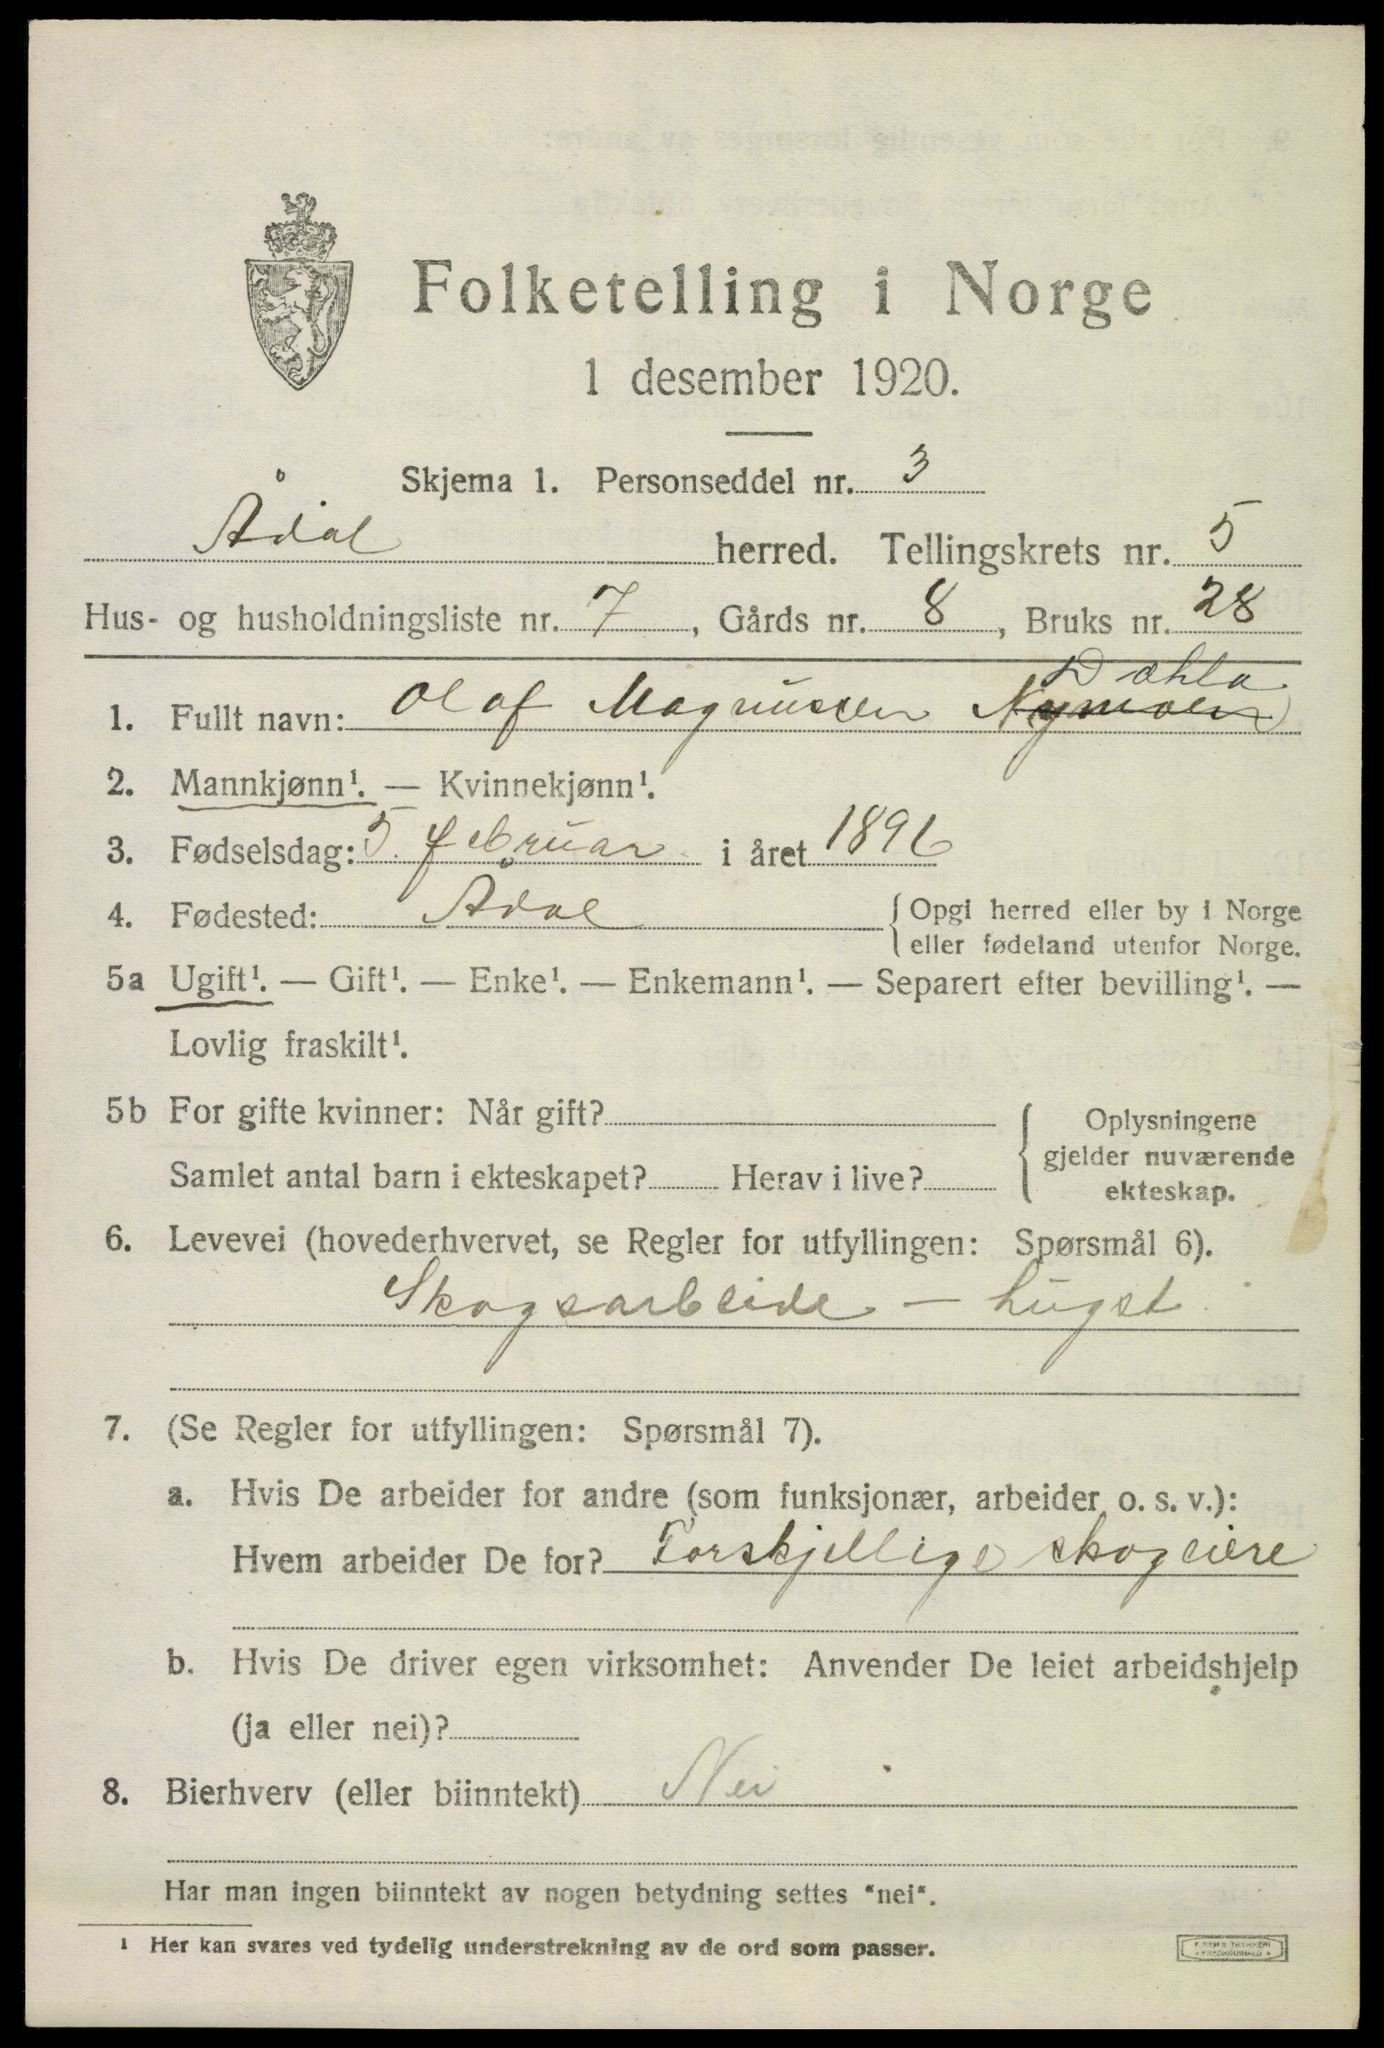 Folketelling i Norge
1 desember 1920.
Skjema 1. Personseddel nr. 3
Ådal herred. Tellingskrets nr. 5
Hus- og husholdningsliste nr. 7, Gårds nr. 8, Bruks nr. 28
Dæhla
1. Fullt navn: Olaf Magnussen Nymoen
2. Mannkjønn¹. — Kvinnekjønn¹.
3. Fødselsdag: 5. februar i året 1896
4. Fødested: Ådal {Opgi herred eller by i Norge
eller fødeland utenfor Norge.
5a Ugift¹. — Gift¹. — Enke¹. — Enkemann¹. — Separert efter bevilling¹. —
Lovlig fraskilt¹.
5b For gifte kvinner: Når gift?
Samlet antal barn i ekteskapet? Herav i live?
Oplysningene
gjelder nuværende
ekteskap.
6. Levevei (hovederhvervet, se Regler for utfyllingen: Spørsmål 6).
Skogsarbeide – hugst.
7. (Se Regler for utfyllingen: Spørsmål 7).
a. Hvis De arbeider for andre (som funksjonær, arbeider o. s. v.):
Hvem arbeider De for? Forskjellige skogeiere
b. Hvis De driver egen virksomhet: Anvender De leiet arbeidshjelp
(ja eller nei)?
8. Bierhverv (eller biinntekt) Nei
Har man ingen biinntekt av nogen betydning settes "nei".
¹ Her kan svares ved tydelig understrekning av de ord som passer.